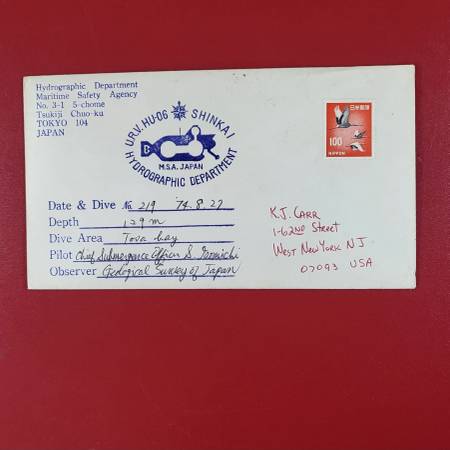 Hydrographic Department
Maritime Safety Agency
No. 3-1 5-chome
Tsukiji Chuo-ku
TOKYO 104
JAPAN
U.R.V. HU-06 SHINKAI
M.S.A. JAPAN
HYDROGRAPHIC DEPARTMENT
日本郵便
100
NIPPON
Date & Dive № 219 '74.8.27
Depth 129 m
Dive Area Tosa bay
Pilot Chief Submergence Officer S.
Observer Geological Survey of Japan
K.J. CARR
1-62ND STREET
WEST NEW YORK N J
07093 USA